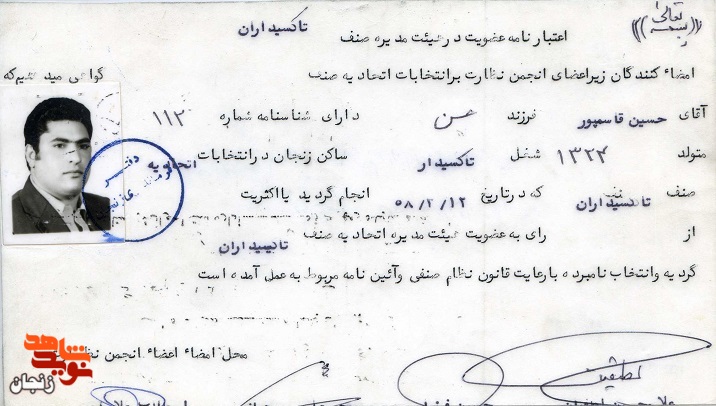 بسمه تعالی
اعتبار نامه عضویت در هیئت مدیره صنف تاکسیداران
امضاء کنندگان زیر اعضای انجمن نظارت بر انتخابات اتحادیه صنف گواهی میدهیم که
آقای حسین قاسمپور فرزند حسن دارای شناسنامه شماره ۱۱۲
متولد ۱۳۲۴ شغل تاکسیدار ساکن زنجان در انتخابات اتحادیه
صنف تاکسیداران که در تاریخ ۵۸/۲/۱۲ انجام گردید با اکثریت
از رای به عضویت هیئت مدیره اتحادیه صنف تاکسیداران
گردیه وانتخاب نامبرده با رعایت قانون نظام صنفی وآئین نامه مربوط به عمل آمده است
محل امضاء اعضاء انجمن
لطیفی
دفتر
نوید شاهد
زنجان